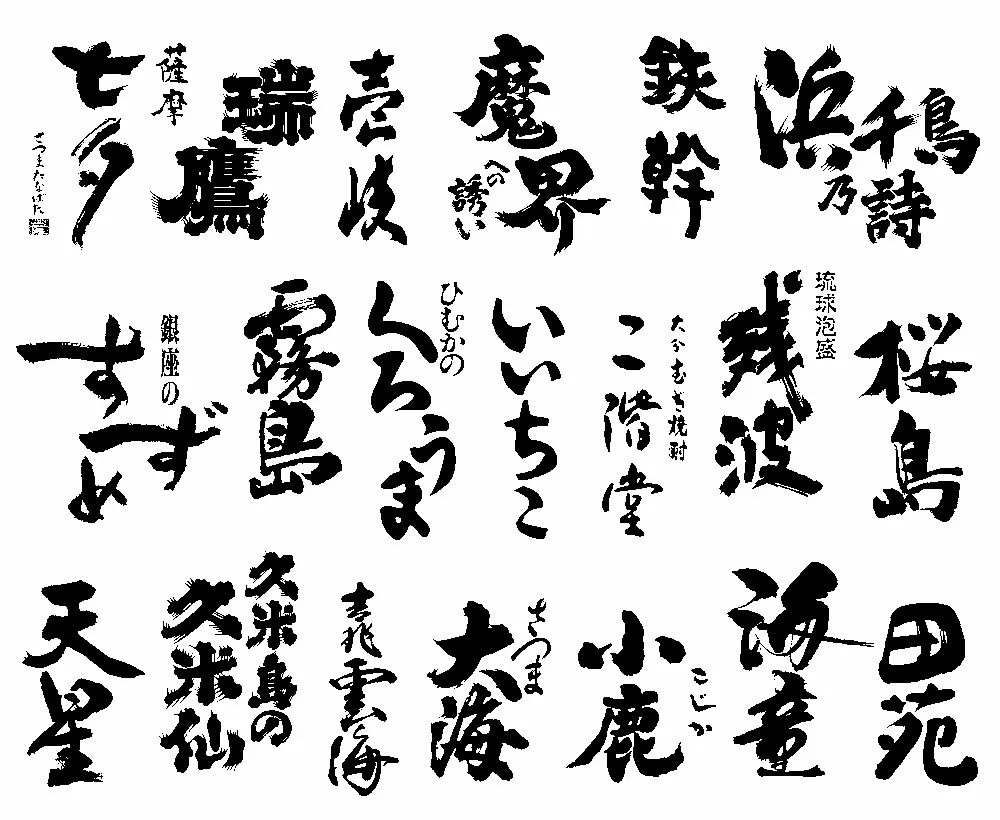 浜千鳥乃詩
鉄幹
魔界への誘い
壱岐
瑞鷹
薩摩
七夕
さつまたなばた
桜島
琉球泡盛
残波
大分むぎ焼酎
二階堂
いいちこ
ひむかの
くろうま
霧島
銀座の
すずめ
田苑
海童
こじか
小鹿
さつま
大海
吉兆雲海
久米島の
久米仙
天星